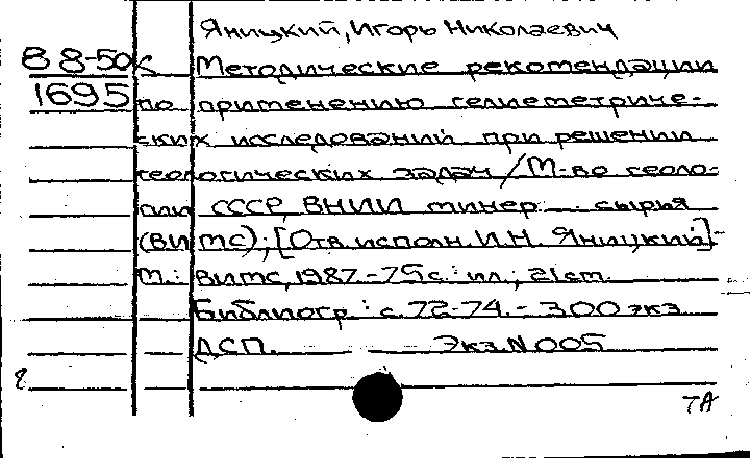 Яницкий, Игорь Николаевич
88-50к Методические рекомендации
1695 по применению гелиеметриче-
ских исследований при решении
геологических задач / М-во геоло-
гии СССР, ВНИИ минер. сырья
(ВИМС); [Отв. исполн. И.Н. Яницкий].-
М.: ВИМС, 1987.-75 с.: ил.; 21 см.
Библиогр.: с. 72-74.- 300 экз.
ДСП. Экз. N 005
7А